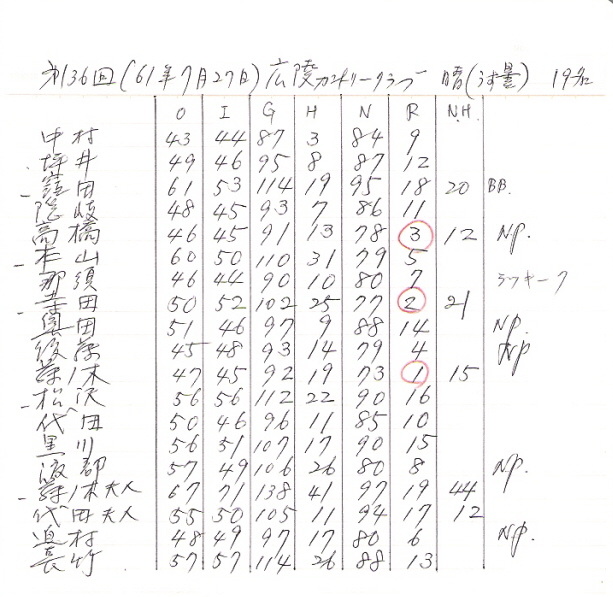 第136回(61年7月27日)広陵カントリークラブ 晴(うす曇) 19名
O I G H N R N.H.
中村 43 44 87 3 84 9
坪井 49 46 95 8 87 12
田 61 53 114 19 95 18 20 BB.
48 45 93 7 86 11
高橋 46 45 91 13 78 3 12 NP.
杉山 60 50 110 31 79 5
那須 46 44 90 10 80 7 ラッキーク
田 50 52 102 25 77 2 21
奥田 51 46 97 9 88 14 NP.
後藤 45 48 93 14 79 4 NP
茅ノ木 47 45 92 19 73 1 15
松沢 56 56 112 22 90 16
代田 50 46 96 11 85 10
黒川 56 51 107 17 90 15
郡 57 49 106 26 80 8 NP.
ノ木夫人 67 71 138 41 97 19 44
代田夫人 55 50 105 11 94 17 12
村 48 49 97 17 80 6 NP.
長竹 57 57 114 26 88 13